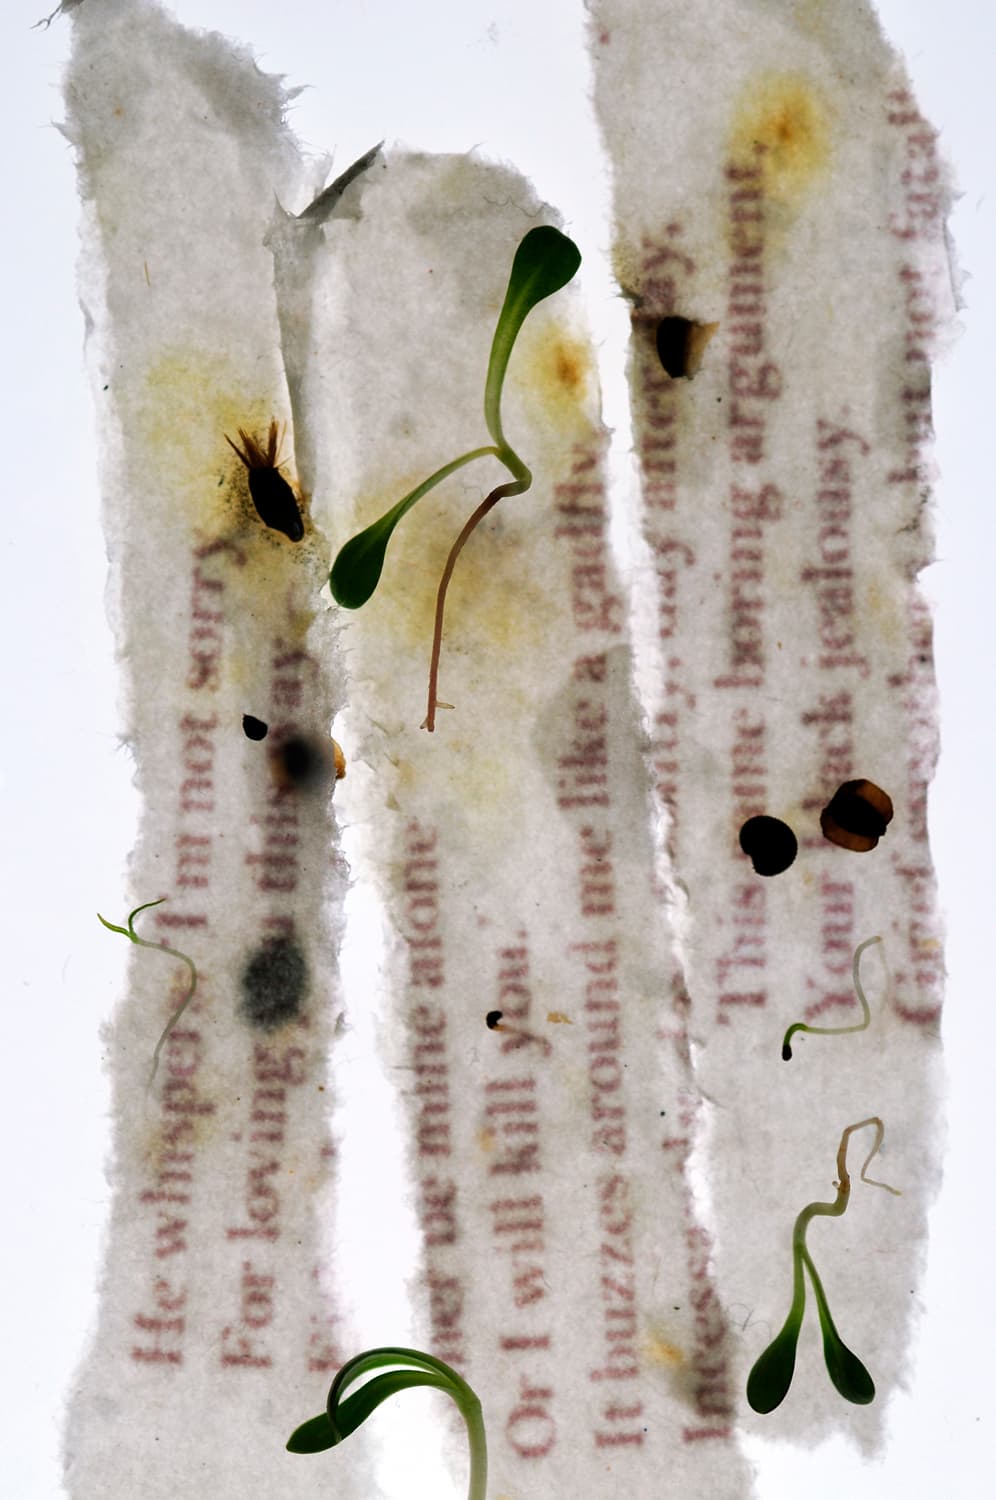 He whispers, I'm not sorry
For loving this way
be mine alone
Or I will kill you.
It buzzes around me like a gadfly,
day after day.
This same boring argument,
Your black jealousy.
but not